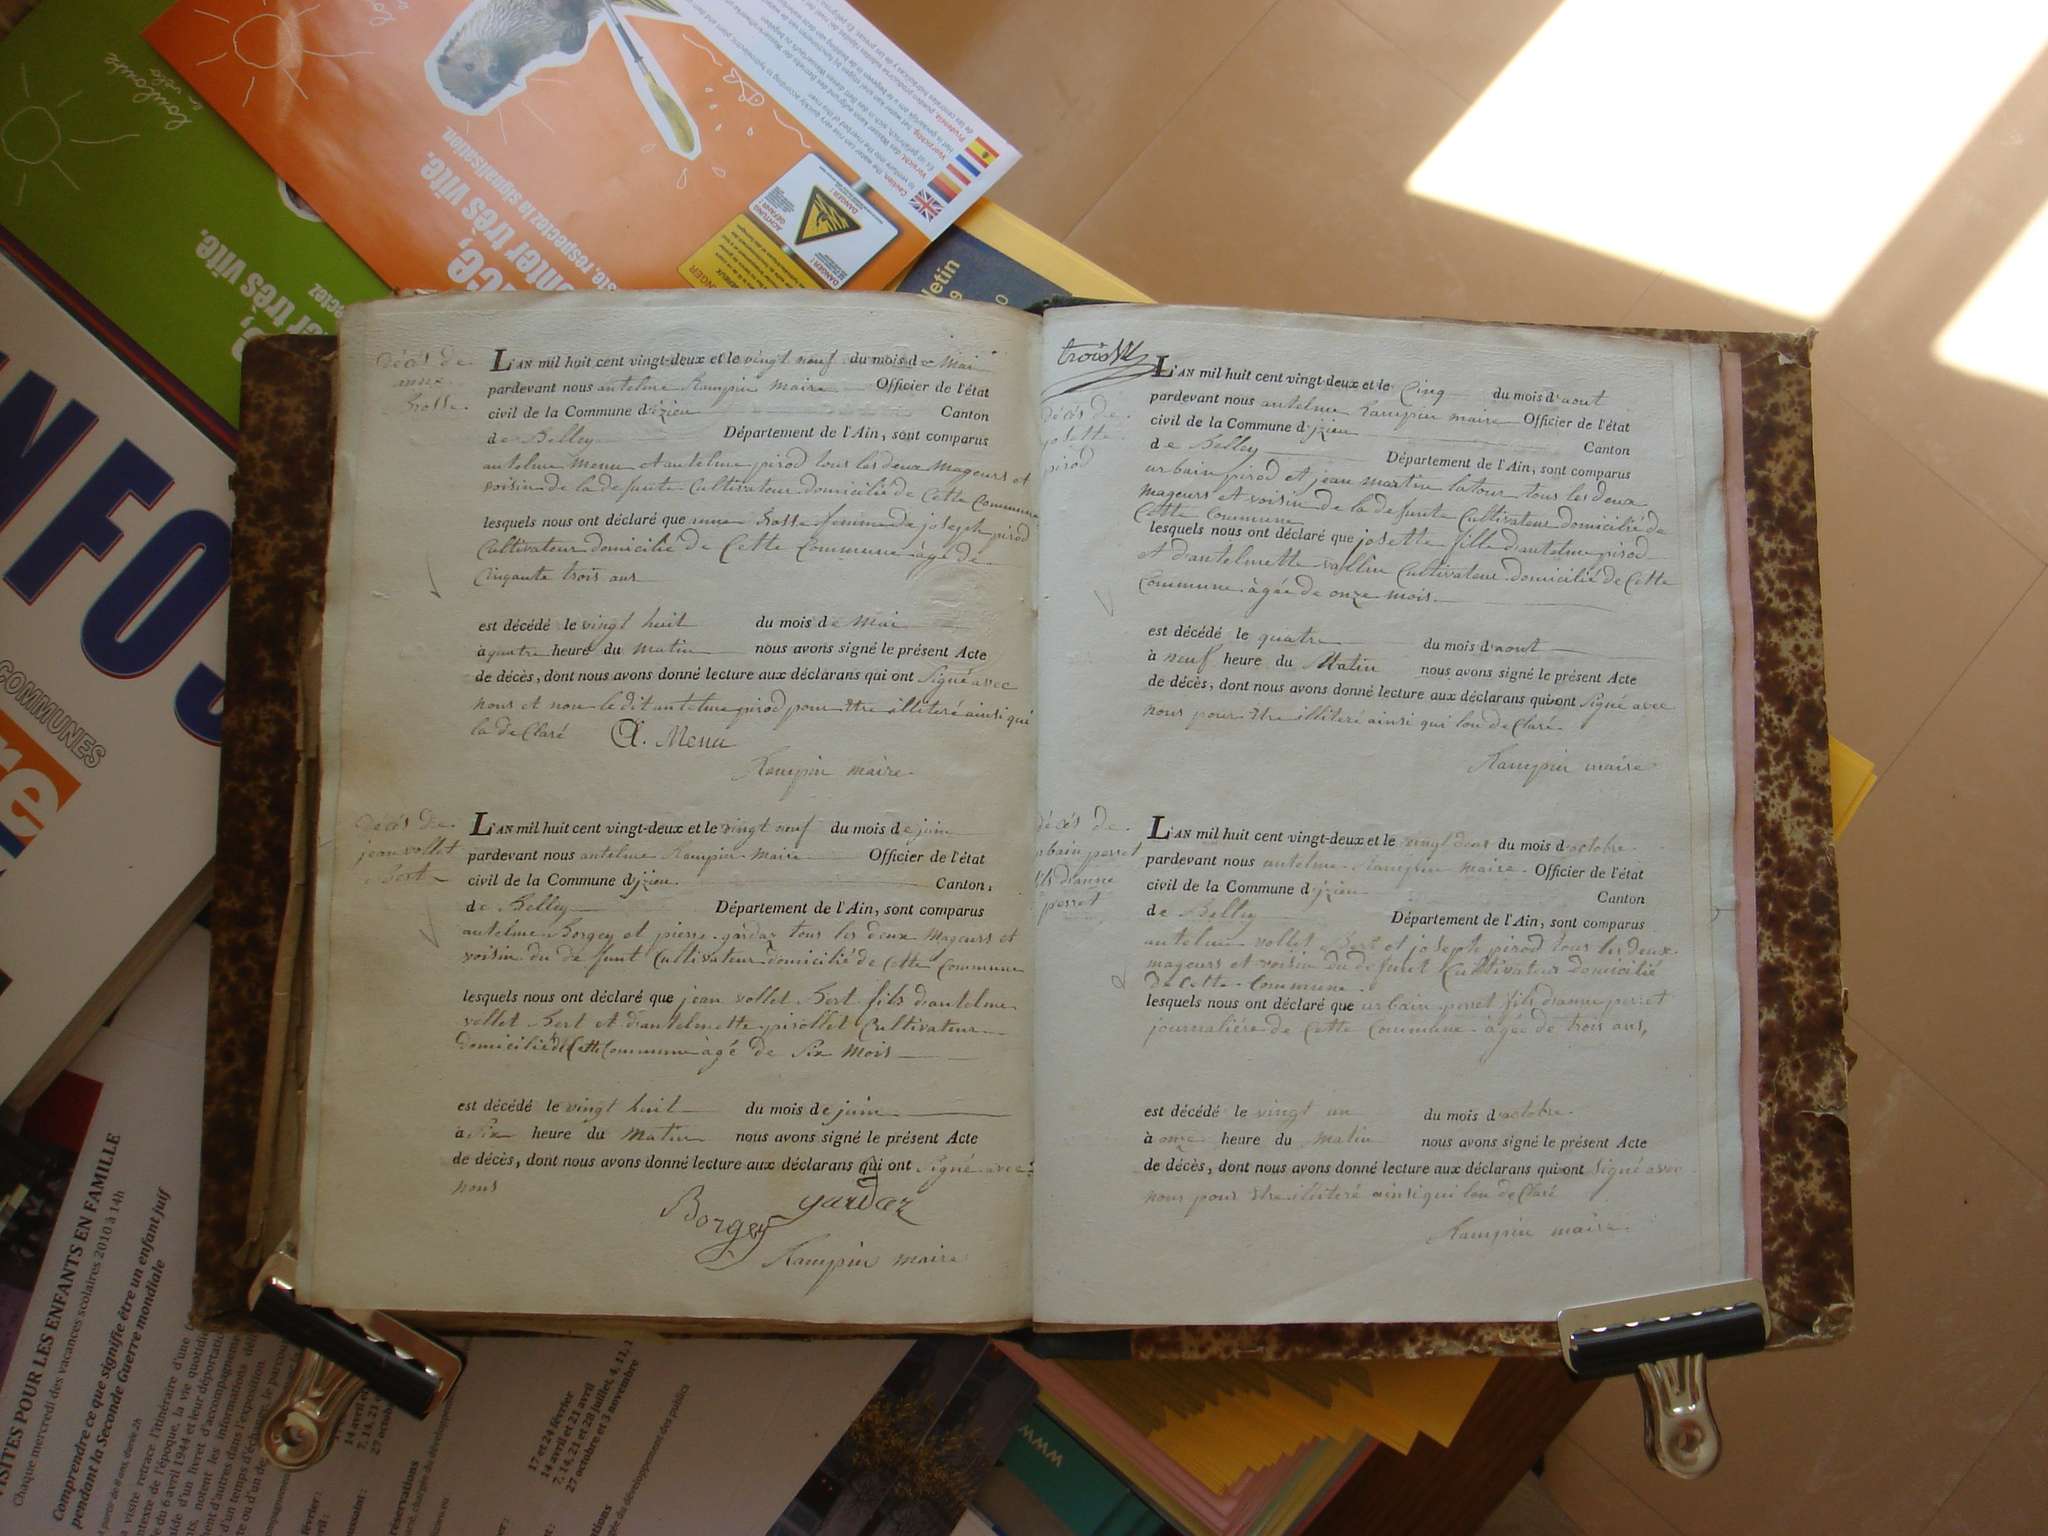 décès de
L'AN mil huit cent vingt-deux et le vingt neuf du mois de Mai
pardevant nous antelme Rampin maire Officier de l'état
civil de la Commune d'izieu Canton
de Belley Département de l'Ain, sont comparus
antelme menu et antelme pirod tous les deux mageurs et
voisin de la defunte Cultivateur domicilié de Cette Commune
lesquels nous ont déclaré que femme de joseph pirod
Cultivateur domicilié de Cette Commune âgé de
Cinqante trois ans
est décédé le vingt huit du mois de Mai
à quatre heure du Matin nous avons signé le présent Acte
de décès, dont nous avons donné lecture aux déclarans qui ont Signé avec
nous et non le dit antelme pirod pour etre illiteré ainsi qui
la de Claré A. Menu
Rampin maire
décès de
jean vollet
Bert
L'AN mil huit cent vingt-deux et le vingt neuf du mois de juin
pardevant nous antelme Rampin Maire Officier de l'état
civil de la Commune d'jzieu Canton
de Belley Département de l'Ain, sont comparus
antelme Borgey et pierre gardaz tous les deux mageurs et
voisin du de funt Cultivateur domicilié de Cette Commune
lesquels nous ont déclaré que jean vollet Bert fils d'antelme
vollet Bert et d'antelmette pisollet Cultivateur
Domicilié de Cette Commune âgé de Six Mois
est décédé le vingt huit du mois de juin
à Six heure du Matin nous avons signé le présent Acte
de décès, dont nous avons donné lecture aux déclarans qui ont Signé avec
nous
Borgey gardaz
Rampin maire
trois
décès de
josette
pirod
L'AN mil huit cent vingt-deux et le Cinq du mois d'aout
pardevant nous antelme Rampin maire Officier de l'état
civil de la Commune d'jzieu Canton
de Belley Département de l'Ain, sont comparus
urbain pirod et jean martin latour tous les deux
mageurs et voisin de la defunte Cultivateur domicilié de
Cette Commune
lesquels nous ont déclaré que josette fille d'antelme pirod
et d'antelmette vallin Cultivateur domicilié de Cette
Commune âgée de onze mois
est décédé le quatre du mois d'aout
à neuf heure du Matin nous avons signé le présent Acte
de décès, dont nous avons donné lecture aux déclarans qui ont Signé avec
nous pour etre illiteré ainsi qui lon de Claré.
Rampin maire
décès de
urbain perret
fils d'anne
perret
L'AN mil huit cent vingt-deux et le vingt deux du mois d'octobre
pardevant nous antelme Rampin maire Officier de l'état
civil de la Commune d'jzieu Canton
de Belley Département de l'Ain, sont comparus
antelme vollet Bert et joseph pirod tous les deux
mageurs et voisin du defunt Cultivateur domicilié
de Cette Commune
lesquels nous ont déclaré que urbain perret fils d'anne perret
journalière de Cette Commune âgée de trois ans,
est décédé le vingt un du mois d'octobre
à onze heure du matin nous avons signé le présent Acte
de décès, dont nous avons donné lecture aux déclarans qui ont Signé avec
nous pour etre illiteré ainsi qui lon de Claré
Rampin maire
toulouse
en vélo
très vite.
respectez la signalisation.
DANGER !
INFOS
COMMUNES
VISITES POUR LES ENFANTS EN FAMILLE
Chaque mercredi des vacances scolaires 2010 à 14h
Comprendre ce que signifie être un enfant juif
pendant la Seconde Guerre mondiale
17 et 24 février
14 avril et 21 avril
7, 14, 21 et 28 juillet, 4, 11, 1
27 octobre et 3 novembre
du développement des publics
www